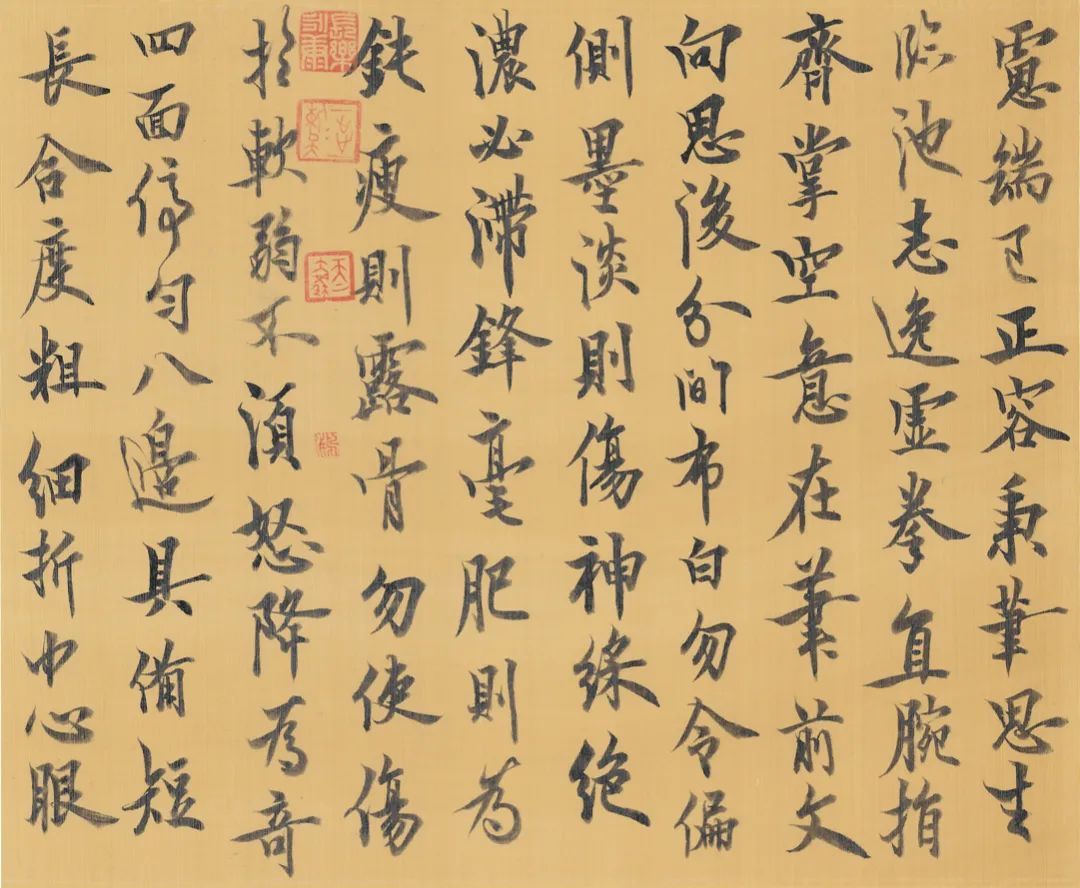 慮端己正容秉筆思生
臨池志逸虛拳直腕指
齊掌空意在筆前文
向思後分間布白勿令偏
側墨淡則傷神絲絕
濃必滯鋒毫肥則為
鈍瘦則露骨勿使傷
於軟弱不須怒降為奇
四面停勻八邊具備短
長合度粗細折中心眼